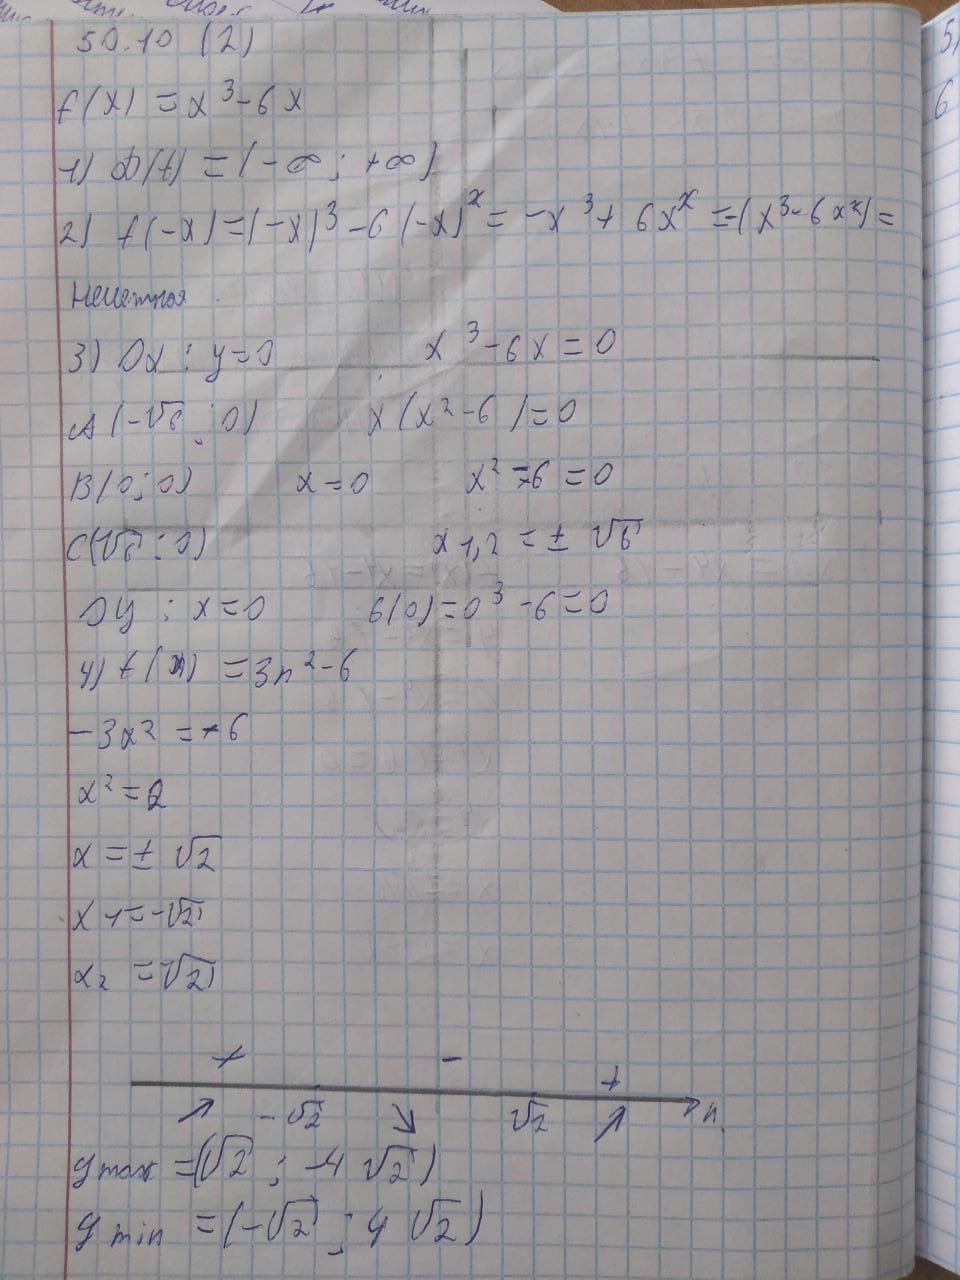 50.10 (2)
f(x) = x³-6x
1) D(f) = (-∞; +∞)
2) f(-x)=(-x)³-6(-x)ˣ = -x³+6xˣ = -(x³-6xˣ) =
Нечетная
3) Ox: y=0 x³-6x=0
A(-√6; 0) x(x²-6)=0
B(0; 0) x=0 x²-6=0
C(√6; 0) x1,2 = ± √6
Oy: x=0 6(0)=0³-6=0
4) f(x) = 3x²-6
-3x² = -6
x² = 2
x = ± √2
x1 = -√2
x2 = √2
+ - +
-√2 √2 x
y max = (√2; -4√2)
y min = (-√2; 4√2)